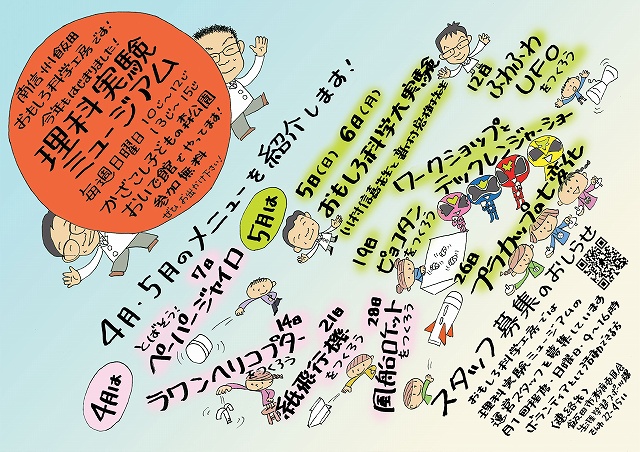 南信州飯田
おもしろ科学工房です!
今年もはじまりました!
理科実験
ミュージアム
毎週日曜日 10じ〜12じ
13じ〜15じ
かざこし子どもの森公園
おいで館でやってます!
参加無料
ぜひお出かけ下さい!
4月・5月のメニューを紹介します!
4月は
7日
とばそう!
ペーパージャイロ
14日
ラワンヘリコプター
をつくろう
21日
紙飛行機
をつくろう
28日
風船ロケット
をつくろう
5月は
5日(日) 6日(月)
おもしろ科学大実験
12日
ふわふわ
UFO
をつくろう
ワークショップと
テックレンジャーショー
19日
ピョコタン
をつくろう
26日
プラカップの七変化
スタッフ募集のおしらせ
おもしろ科学工房では
理科実験ミュージアムの
運営スタッフを募集しています
月1回程度・日曜日・9〜16時